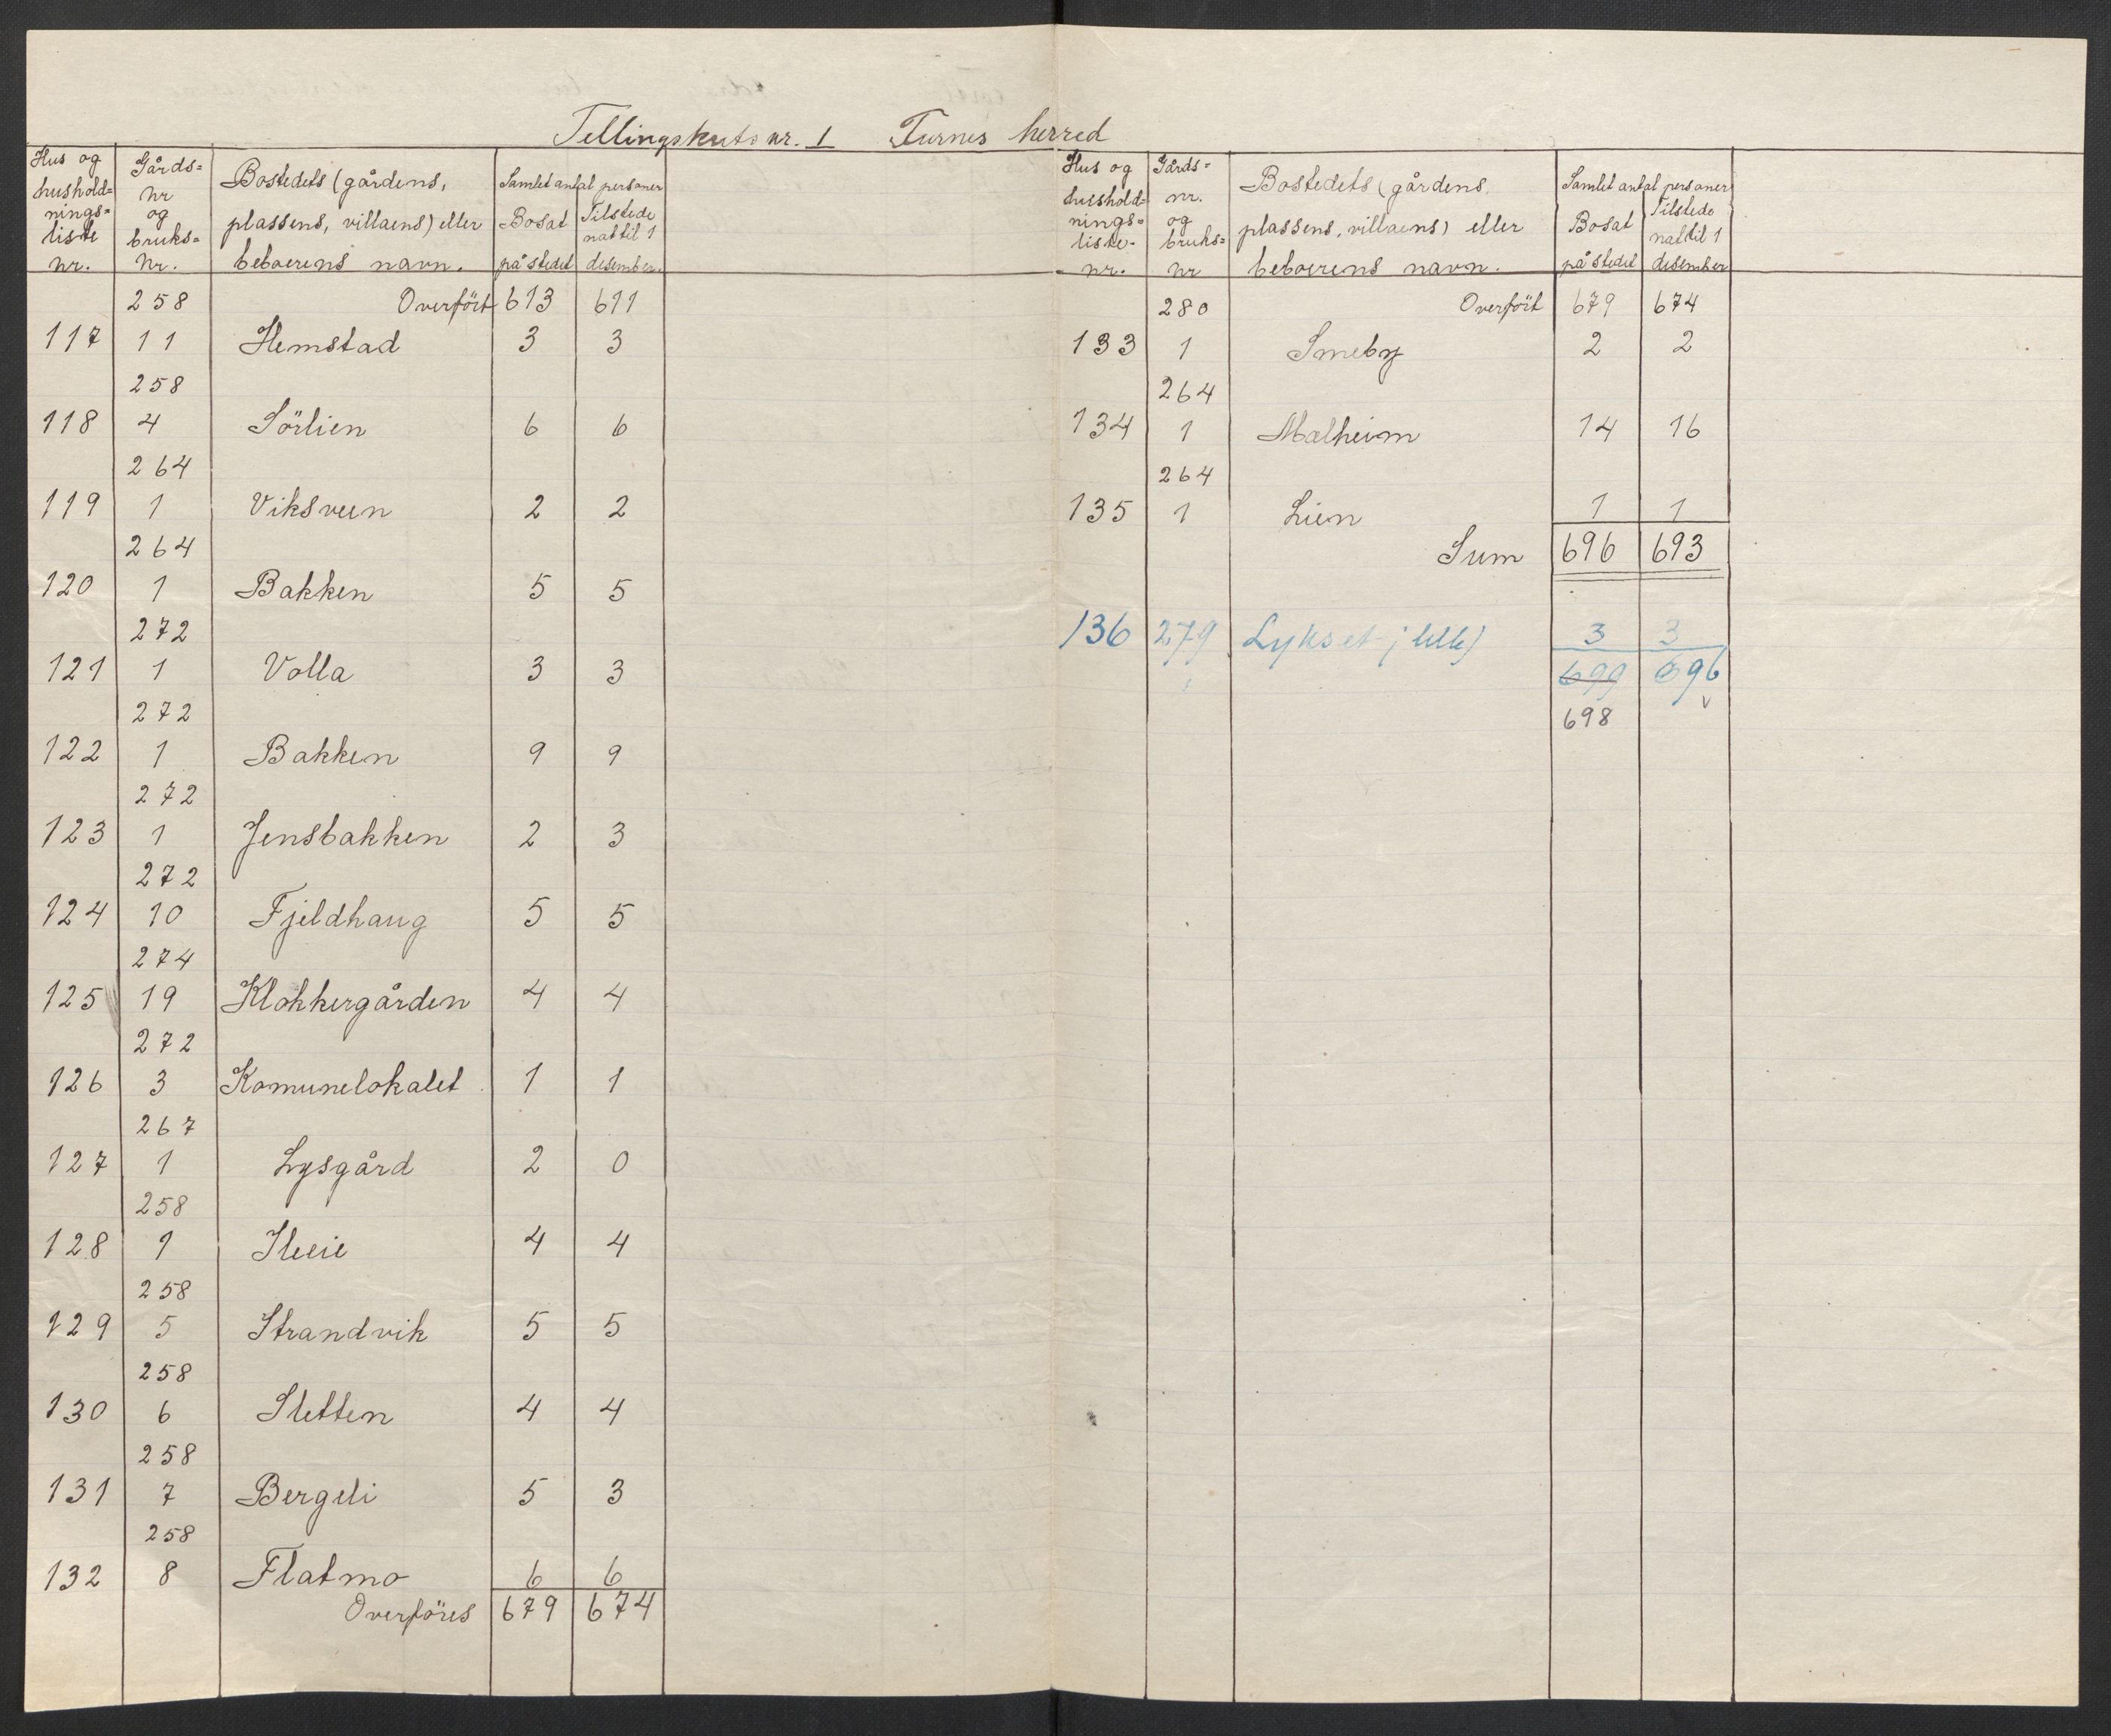 Tellingskrets nr. 1 Furnes herred
Hus og husholdnings=liste nr. | Gårds=nr og bruks=nr. | Bostedets (gårdens, plassens, villaens) eller beboerens navn. | Samlet antal personer | Bosat på stedet | Tilstede nat til 1 desember.
258 Overfört 613 611
117 11 Hemstad 3 3
258
118 4 Sörlien 6 6
264
119 1 Viksveen 2 2
264
120 1 Bakken 5 5
272
121 1 Volla 3 3
272
122 1 Bakken 9 9
272
123 1 Jensbakken 2 3
272
124 10 Fjeldhaug 5 5
274
125 19 Klokkergården 4 4
272
126 3 Komunelokalet 1 1
267
127 1 Lysgård 2 0
258
128 1 4 4
258
129 5 Strandvik 5 5
258
130 6 Sletten 4 4
258
131 7 Bergeli 5 3
258
132 8 Flatmo 6 6
Overföres 679 674
Hus og hushold=nings=liste- nr. | Gårds=nr. og bruks=nr | Bostedets (gårdens, plassens, villaens) eller beboerens navn. | Samlet antal personer | Bosat på stedet | Tilstede nat til 1 desember
280 Overfört 679 674
133 1 Smeby 2 2
264
134 1 Malheim 14 16
264
135 1 Lien 1 1
Sum 696 693
136 279 Lykset 3 3
699 696
698 v